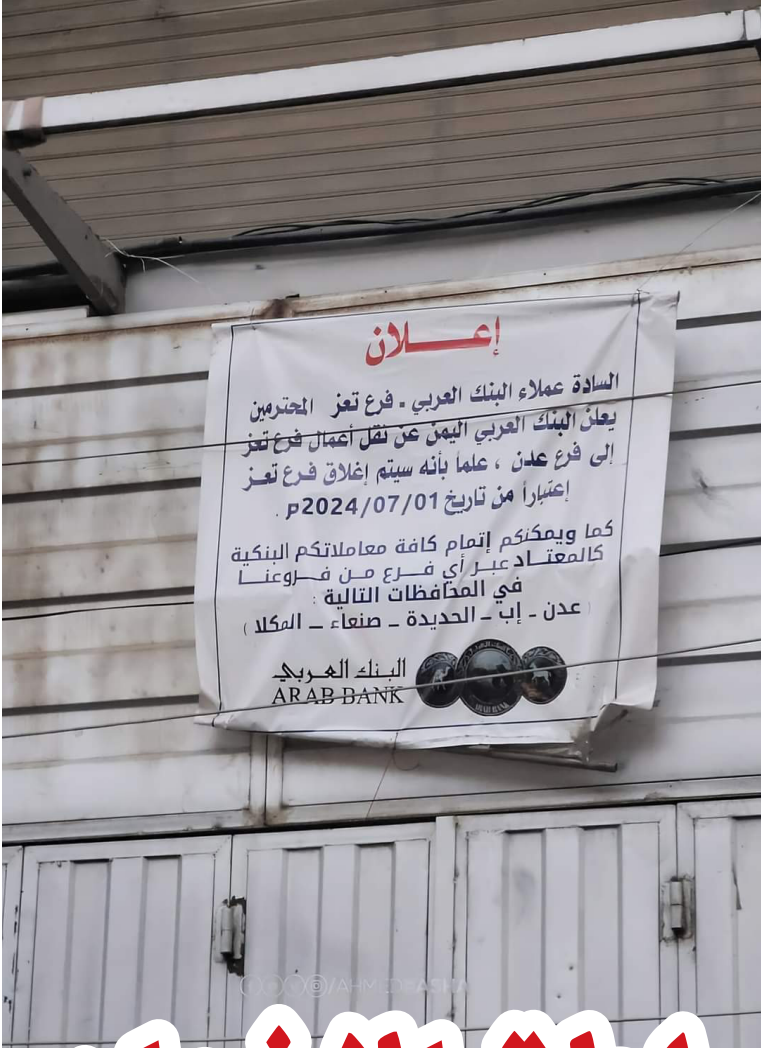 إعـــــلان
السادة عملاء البنك العربي - فرع تعز المحترمين
يعلن البنك العربي اليمن عن نقل أعمال فرع تعز
إلى فرع عدن ، علماً بأنه سيتم إغلاق فـرع تعـز
إعتباراً من تاريخ 2024/07/01م .
كما ويمكنكم إتمام كافة معاملاتكم البنكية
كالمعتــاد عبـر أي فــرع مـن فــروعنــا
في المحافظات التالية :
( عدن - إب - الحديدة - صنعاء - المكلا )
البنك العربي
ARAB BANK
ARAB BANK
/AHMEDBASHA